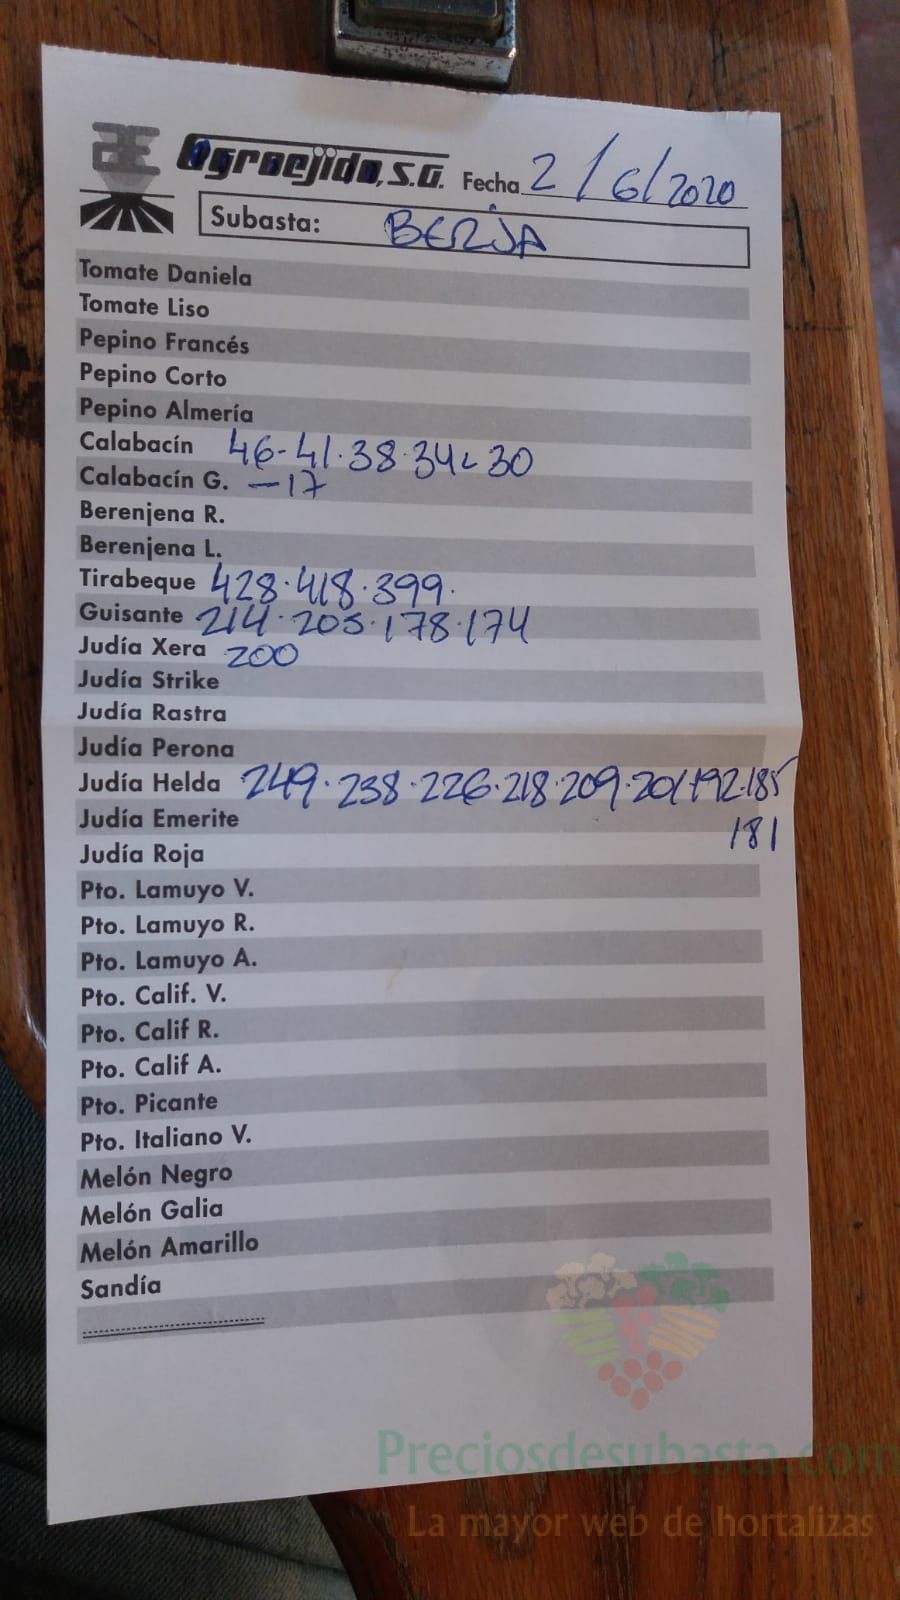 Agroejido, S.A. Fecha 2/6/2020
Subasta: BERJA
Tomate Daniela
Tomate Liso
Pepino Francés
Pepino Corto
Pepino Almería
Calabacín 46-41.38.34 30
Calabacín G. —17
Berenjena R.
Berenjena L.
Tirabeque 428.418.399.
Guisante 214.205.178.174
Judía Xera 200
Judía Strike
Judía Rastra
Judía Perona
Judía Helda 249.238.226.218.209.201.192.185
Judía Emerite 181
Judía Roja
Pto. Lamuyo V.
Pto. Lamuyo R.
Pto. Lamuyo A.
Pto. Calif. V.
Pto. Calif R.
Pto. Calif A.
Pto. Picante
Pto. Italiano V.
Melón Negro
Melón Galia
Melón Amarillo
Sandía
Preciosdesubasta.com
La mayor web de hortalizas